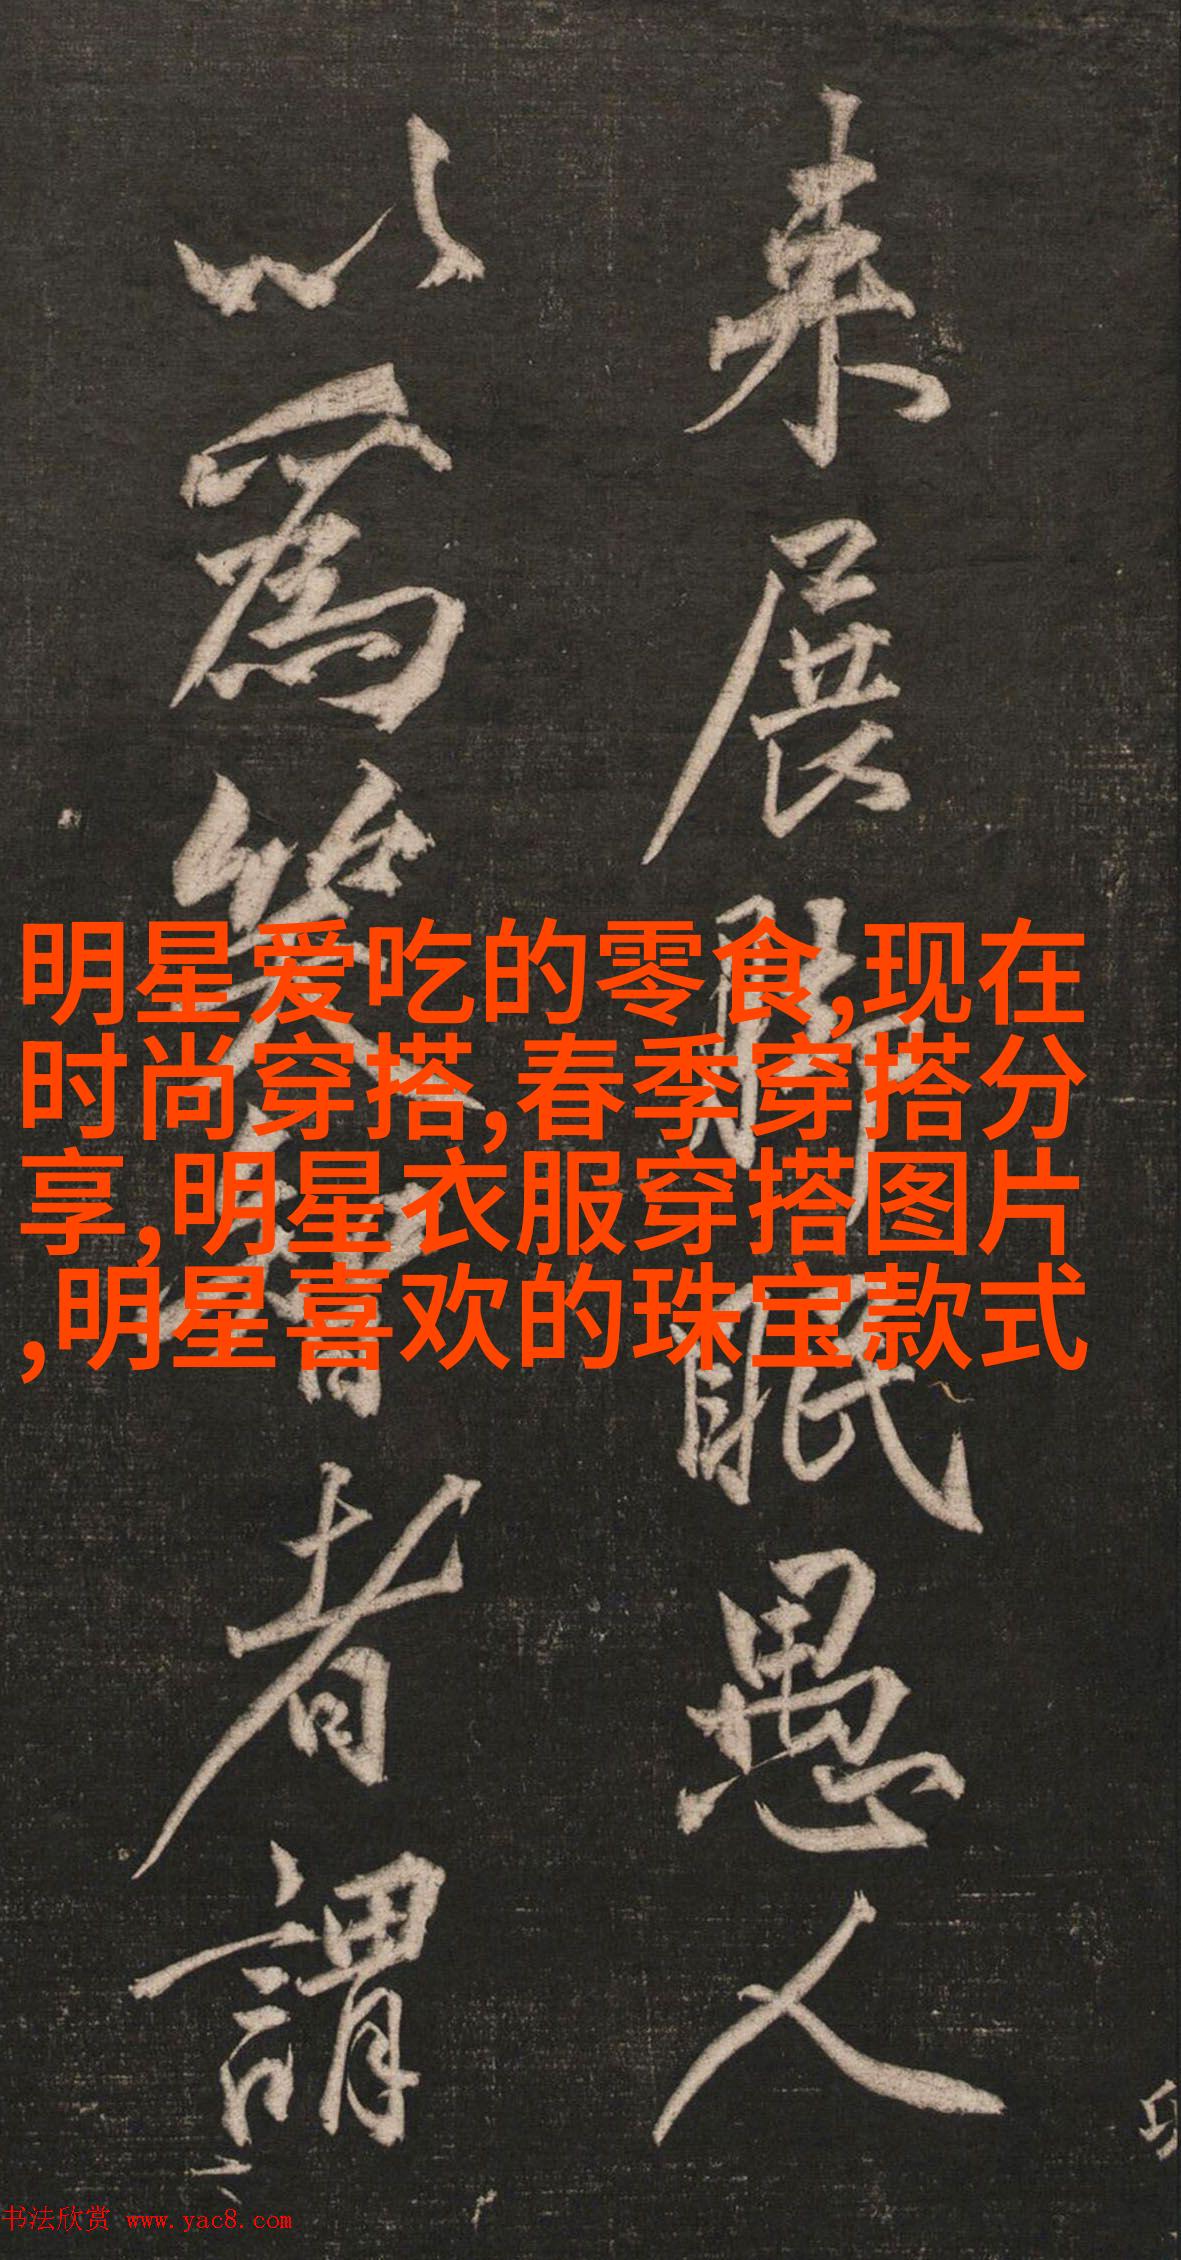 来展脚眠愚人
以為笑智者謂
明星爱吃的零食,现在
时尚穿搭,春季穿搭分
享,明星衣服穿搭图片
,明星喜欢的珠宝款式
书法欣赏 www.yac8.com